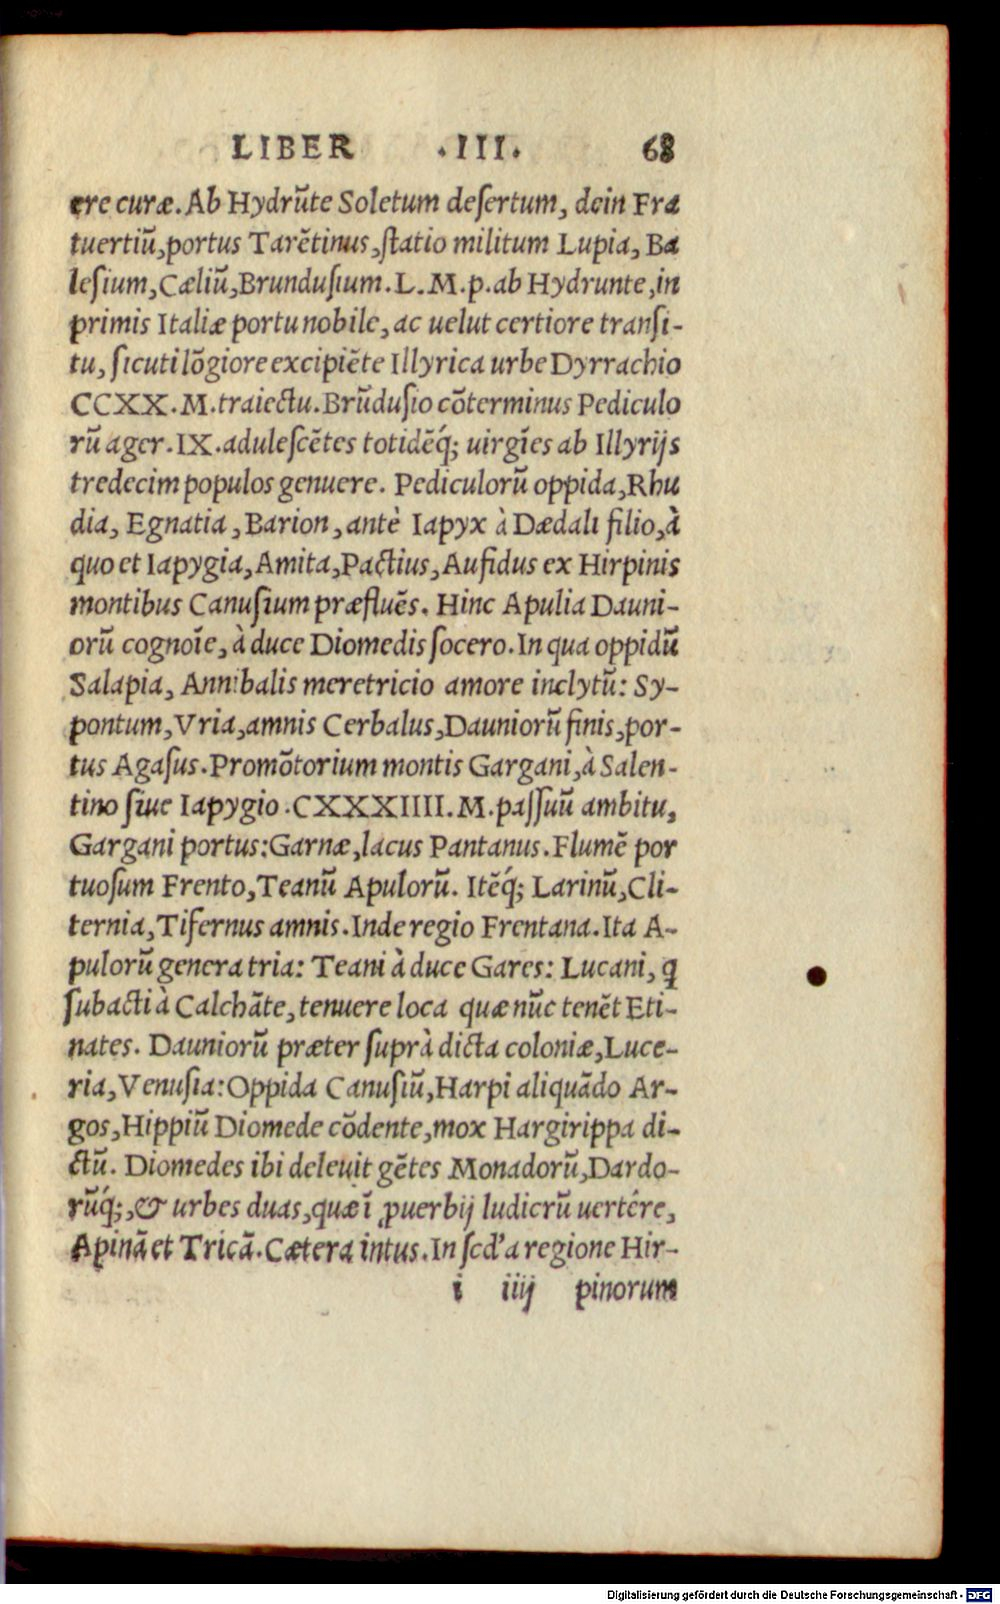 LIBER .III. 68
ere curæ. Ab Hydrũte Soletum desertum, dein Fra
tuertiũ, portus Tarẽtinus, statio militum Lupia, Ba
lesium, Cæliũ, Brundusium. L. M. p. ab Hydrunte, in
primis Italiæ portu nobile, ac uelut certiore transi-
tu, sicuti lõgiore excipiẽte Illyrica urbe Dyrrachio
CCXX. M. traiectu. Brũdusio cõterminus Pediculo
rũ ager. IX. adulescẽtes totidẽq́; uirgĩes ab Illyrijs
tredecim populos genuere. Pediculorũ oppida, Rhu
dia, Egnatia, Barion, antè Iapyx à Dædali filio, à
quo et Iapygia, Amita, Pactius, Aufidus ex Hirpinis
montibus Canusium præfluẽs. Hinc Apulia Dauni-
orũ cognoĩe, à duce Diomedis socero. In qua oppidũ
Salapia, Annibalis meretricio amore inclytũ: Sy-
pontum, Vria, amnis Cerbalus, Dauniorũ finis, por-
tus Agasus. Promõtorium montis Gargani, à Salen-
tino siue Iapygio. CXXXIIII. M. passuũ ambitu,
Gargani portus: Garnæ, lacus Pantanus. Flumẽ por
tuosum Frento, Teanũ Apulorũ. Itẽq́; Larinũ, Cli-
ternia, Tifernus amnis. Inde regio Frentana. Ita A-
pulorũ genera tria: Teani à duce Gares: Lucani, q
subacti à Calchãte, tenuere loca quæ nũc tenẽt Eti-
nates. Dauniorũ præter suprà dicta coloniæ, Luce-
ria, Venusia: Oppida Canusiũ, Harpi aliquãdo Ar-
gos, Hippiũ Diomede cõdente, mox Hargirippa di-
ctũ. Diomedes ibi deleuit gẽtes Monadorũ, Dardo-
rũq́;, & urbes duas, quæ ĩ ꝓuerbij ludicrũ uertêre,
Apinã et Tricã. Cætera intus. In scd'a regione Hir-
i iiij pinorum
Digitalisierung gefördert durch die Deutsche Forschungsgemeinschaft - DFG